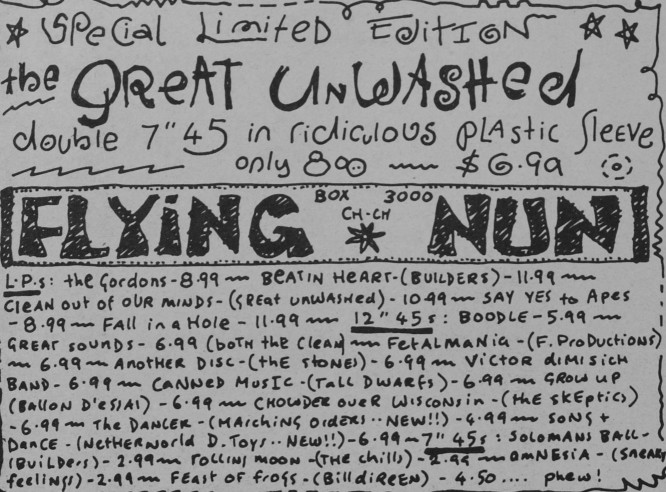 SPecial Limited EditION
the GREAT UNWASHed
double 7" 45 in ridiculous PLAstic Sleeve
only 800 ~ $6.99
FLYiNG BOX 3000 CH-CH NUN
L.P.s: the Gordons-8.99 ~ BEATIN HEART-(BUILDERS)-11.99 ~
CLEAN out of OUR MINDS-(GREAt UNWASHed)-10.99 ~ SAY YES to Apes
-8.99 ~ FALL in a Hole - 11.99 ~ 12" 45s: BOODLE-5.99 ~
GREAT SOUNDS-6.99 (botH the CLEAN) ~ FetALMANiA-(F.ProDUCtions)
~ 6.99 ~ ANotHER DISC-(thE stONES)-6.99 ~ VICTOR diMISICH
BAND-6.99 ~ CANNED MUSIC-(TALL DWARfs)-6.99 ~ GROW UP
(BALLON D'ESSAI)-6.99 ~ CHOWDER oveR Wisconsin-(tHE SKEptics)
-6.99 ~ The DANCER-(MARCHING ORDERS..NEW!!)-4.99 ~ SONG +
DANCE-(NETHERWORLD D.Toys..NEW!!)-6.99 ~ 7" 45s: SOLOMANS BALL-
(BUILDers)-2.99 ~ ROLLING MOON-(THE chills)-2.99 ~ AMNESiA-(SNEAKY
feelings)-2.99 ~ FEAST of frogs-(Bill diREEN)-4.50.... phew!